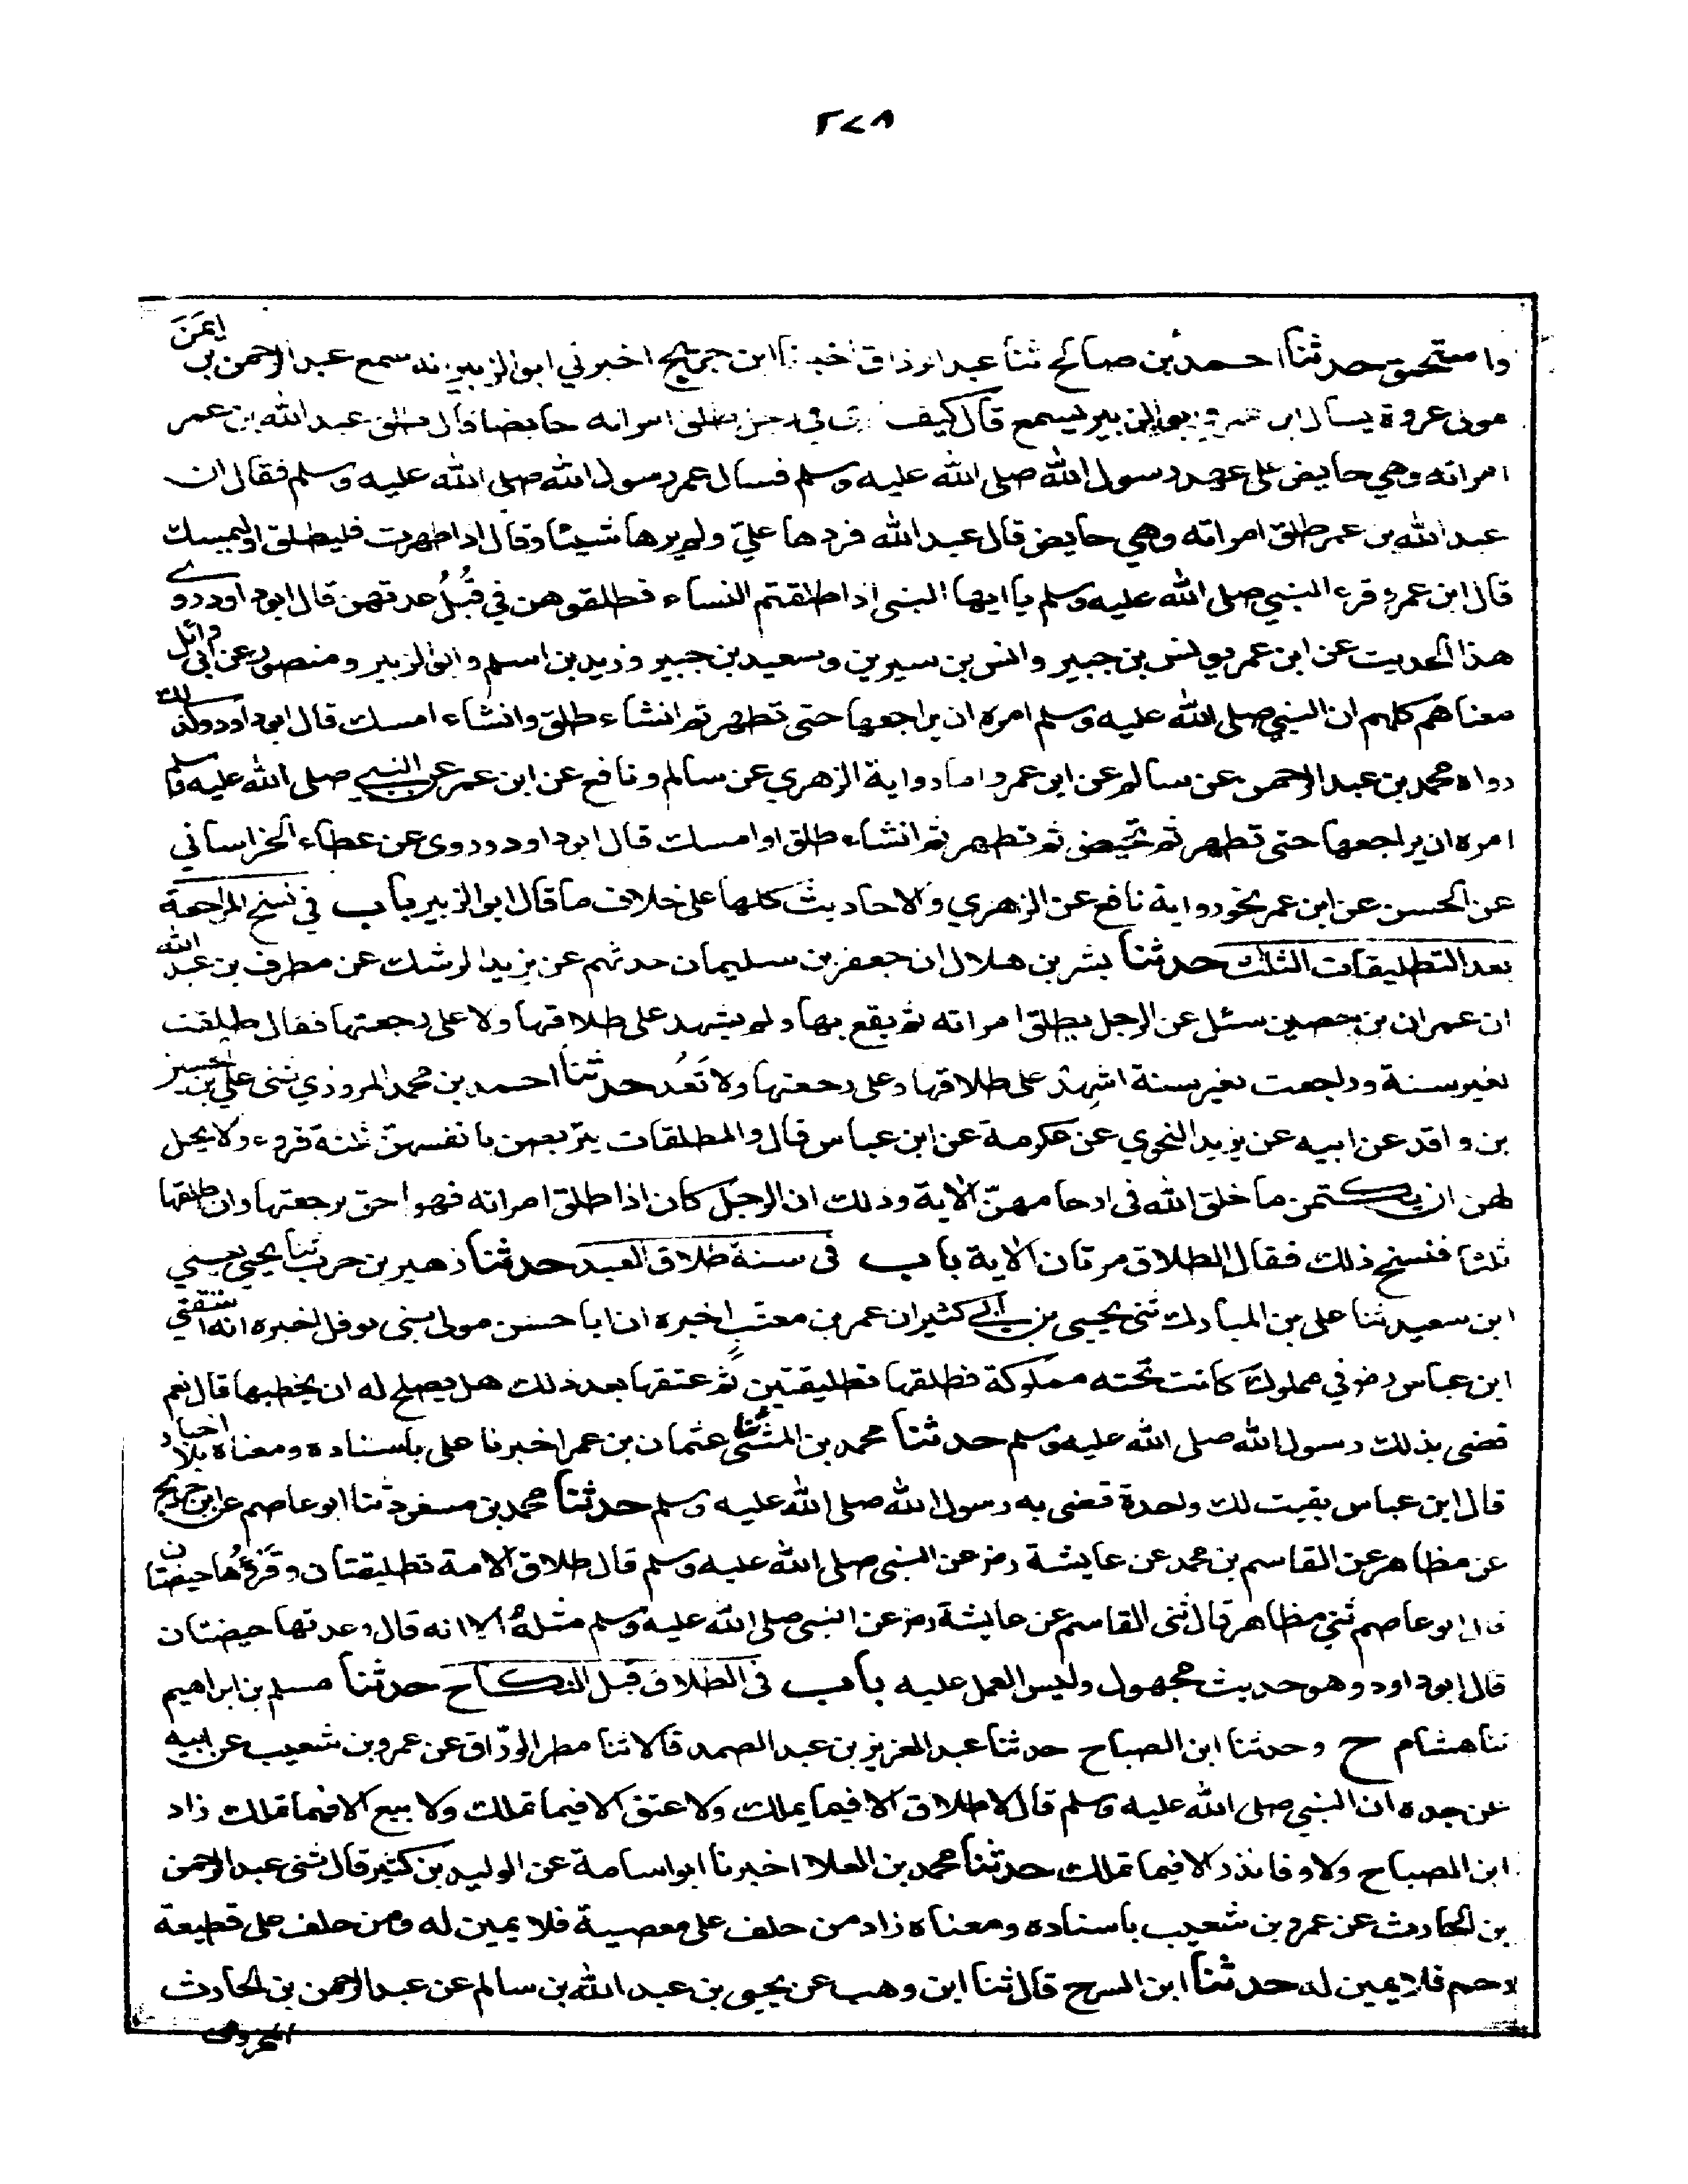 ٢٧٨
واستحمق حدثنا احمد بن صالح ثنا عبد الرزاق اخبرنا ابن جريج اخبرني ابو الزبير انه سمع عبد الرحمن بن ايمن
مولى عروة يسال ابن عمر وابو الزبير يسمع قال كيف ترى في رجل طلق امراته حايضا قال طلق عبد الله بن عمر
امراته وهي حايض على عهد رسول الله صلى الله عليه وسلم فسال عمر رسول الله صلى الله عليه وسلم فقال ان
عبد الله بن عمر طلق امراته وهي حايض قال عبد الله فردها عليّ ولم يرها شيئا وقال اذا طهرت فليطلق او ليمسك
قال ابن عمر وقرء النبي صلى الله عليه وسلم يا ايها النبي اذا طلقتم النساء فطلقوهن في قُبُلُ عدتهن قال ابو داود روى
هذا الحديث عن ابن عمر يونس بن جبير وانس بن سيرين وسعيد بن جبير وزيد بن اسلم وابو الزبير ومنصور عن ابي وائل
معناهم كلهم ان النبي صلى الله عليه وسلم امره ان يراجعها حتى تطهر ثم انشاء طلق وانشاء امسك قال ابو داود وكذلك
رواه محمد بن عبد الرحمن عن سالم عن ابن عمر واما رواية الزهري عن سالم ونافع عن ابن عمر عن النبي صلى الله عليه وسلم
امره ان يراجعها حتى تطهر ثم تحيض ثم تطهر ثم انشاء طلق او امسك قال ابو داود وروى عن عطاء الخراساني
عن الحسن عن ابن عمر نحو رواية نافع عن الزهري والاحاديث كلها على خلاف ما قال ابو الزبير باب في نسخ المراجعة
بعد التطليقات الثلث حدثنا بشر بن هلال ان جعفر بن سليمان حدثهم عن يزيد الرشك عن مطرف بن عبد الله
ان عمران بن حصين سئل عن الرجل يطلق امراته ثم يقع بها ولم يشهد على طلاقها ولا على رجعتها فقال طلقت
لغير سنة وراجعت لغير سنة اشهد على طلاقها وعلى رجعتها ولا تَعُد حدثنا احمد بن محمد المروزي ثنى علي بن حسين
بن واقد عن ابيه عن يزيد النحوي عن عكرمة عن ابن عباس قال والمطلقات يتربصن بانفسهن ثلثة قروء ولا يحل
لهن ان يكتمن ما خلق الله في ارحامهنّ الآية وذلك ان الرجل كان اذا طلق امراته فهو احق برجعتها وان طلقها
ثلثا فنسخ ذلك فقال الطلاق مرتان الاية باب في سنة طلاق العبد حدثنا زهير بن حرب ثنا يحيى يعني
ابن سعيد ثنا على بن المبارك ثنى يحيى بن ابي كثير ان عمر بن معتب اخبره ان ابا حسن مولى بني نوفل اخبره انه استفتي
ابن عباس رضو في مملوك كانت تحته مملوكة فطلقها تطليقتين ثم عتقها بعد ذلك هل يصلح له ان يخطبها قال نعم
قضى بذلك رسول الله صلى الله عليه وسلم حدثنا محمد بن المثنى ثنا عثمان بن عمر اخبرنا على باسناده ومعناه بلا اخبار
قال ابن عباس بقيت لك واحدة قضى به رسول الله صلى الله عليه وسلم حدثنا محمد بن مسعود ثنا ابو عاصم عن ابن جريج
عن مظاهر عن القاسم بن محمد عن عايشة رضو عن النبي صلى الله عليه وسلم قال طلاق الامة تطليقتان وقرؤُها حيضتان
قال ابو عاصم ثني مظاهر قال ثنى القاسم عن عايشة رضو عن النبي صلى الله عليه وسلم مثلهُ الا انه قال وعدتها حيضتان
قال ابو داود وهو حديث مجهول وليس العمل عليه باب في الطلاق قبل النكاح حدثنا مسلم بن ابراهيم
ثنا هشام ح وحدثنا ابن الصباح حدثنا عبد العزيز بن عبد الصمد قالا ثنا مطر الورّاق عن عمرو بن شعيب عن ابيه
عن جده ان النبي صلى الله عليه وسلم قال لا طلاق الا فيما يملك ولا عتق الا فيما تملك ولا بيع الا فيما تملك زاد
ابن الصباح ولا وفا نذر الا فيما تملك حدثنا محمد بن العلا اخبرنا ابو اسامة عن الوليد بن كثير قال ثنى عبد الرحمن
بن الحارث عن عمرو بن شعيب باسناده ومعناه زاد من حلف على معصية فلا يمين له ومن حلف على قطيعة
رحم فلا يمين له حدثنا ابن السرح قال ثنا ابن وهب عن يحيى بن عبد الله بن سالم عن عبد الرحمن بن الحارث